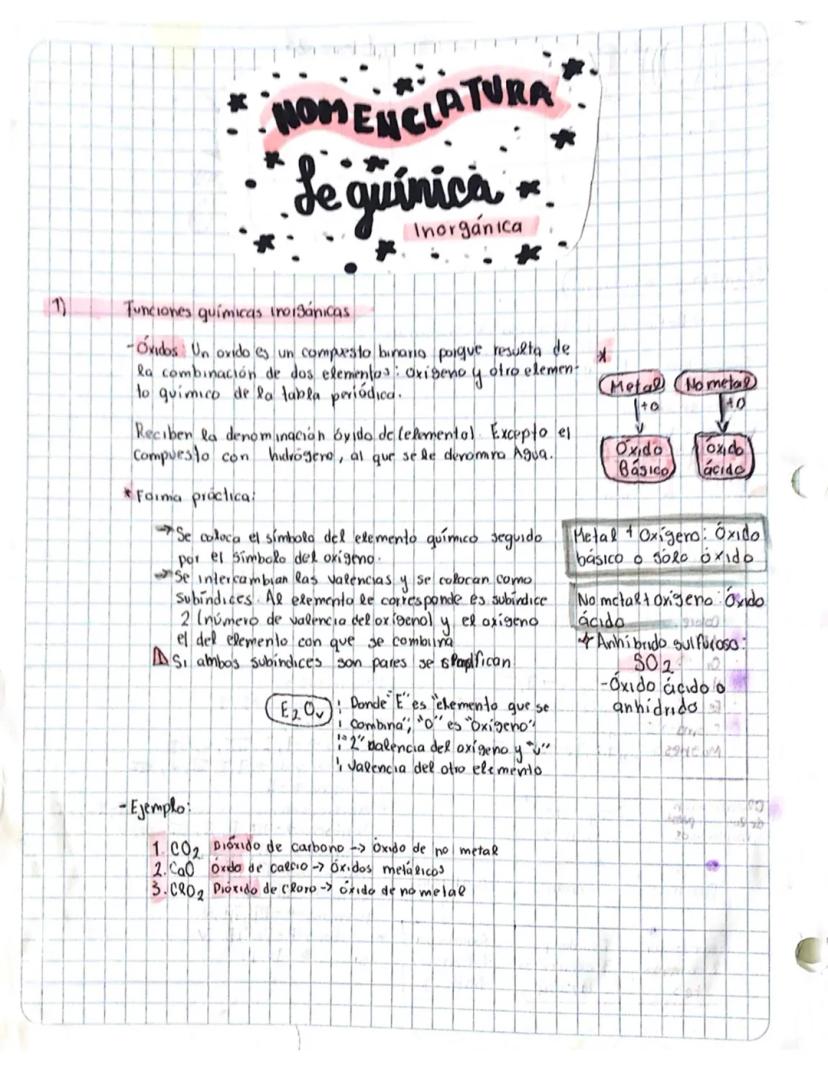 NOMENCLATURA
de química
Inorgánica
1) Funciones químicas inorgánicas
- Óxidos Un oxido es un compuesto binario porque resulta de
la combinación de dos elementos: oxígeno y otro elemen-
to químico de la tabla periódica.
Reciben la denominación óxido de (elemento). Excepto el
compuesto con hidrógeno, al que se le denomina Agua.
*
Metal
No metal
+O
+O
Óxido
Básico
Óxido
ácido
* Forma práctica:
→ Se coloca el símbolo del elemento químico seguido
por el símbolo del oxígeno.
→ Se intercambian las valencias y se colocan como
Subíndices. Al elemento le corresponde es subíndice
2 (número de valencia del oxígeno) y el oxígeno
el del elemento con que se combina
Si ambos subíndices son pares se
Metal + Oxígeno: Óxido
básico o sólo óxido
No metal + oxigeno: Óxido
ácido
Anhibrido sulfuroso:
SO2
- Óxido ácido o
anhídrido
E2Ov
Donde "E" es "elemento que se
combina", "O" es "oxígeno"
"2" valencia del oxígeno y "v"
valencia del otro elemento
- Ejemplo:
1. CO2 Dióxido de carbono → óxido de no metal
2. CaO óxido de calcio → óxidos metálicos
3. ClO2 Dióxido de cloro → óxido de no metal